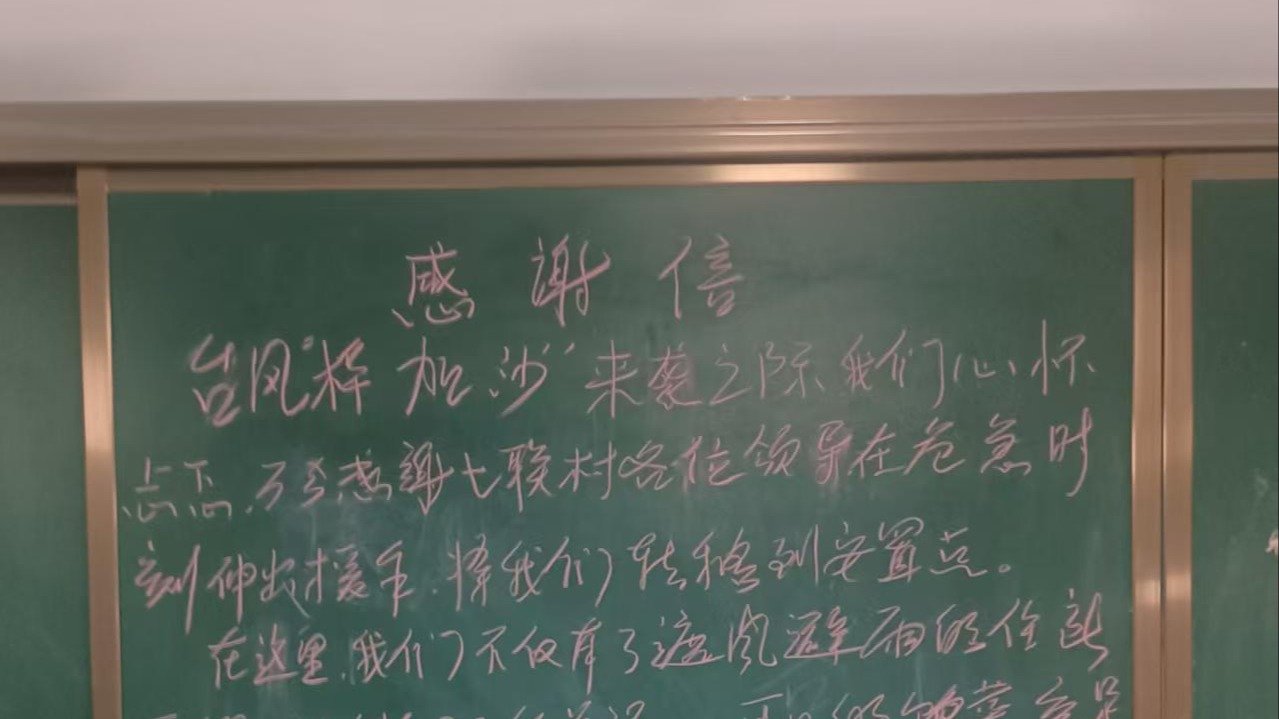 感谢信
台风"桦加沙"来袭之际,我们心怀
忐忑,万分感谢七联村各位领导在危急时
刻伸出援手,将我们转移到安置点。
在这里,我们不仅有了遮风避雨的住所